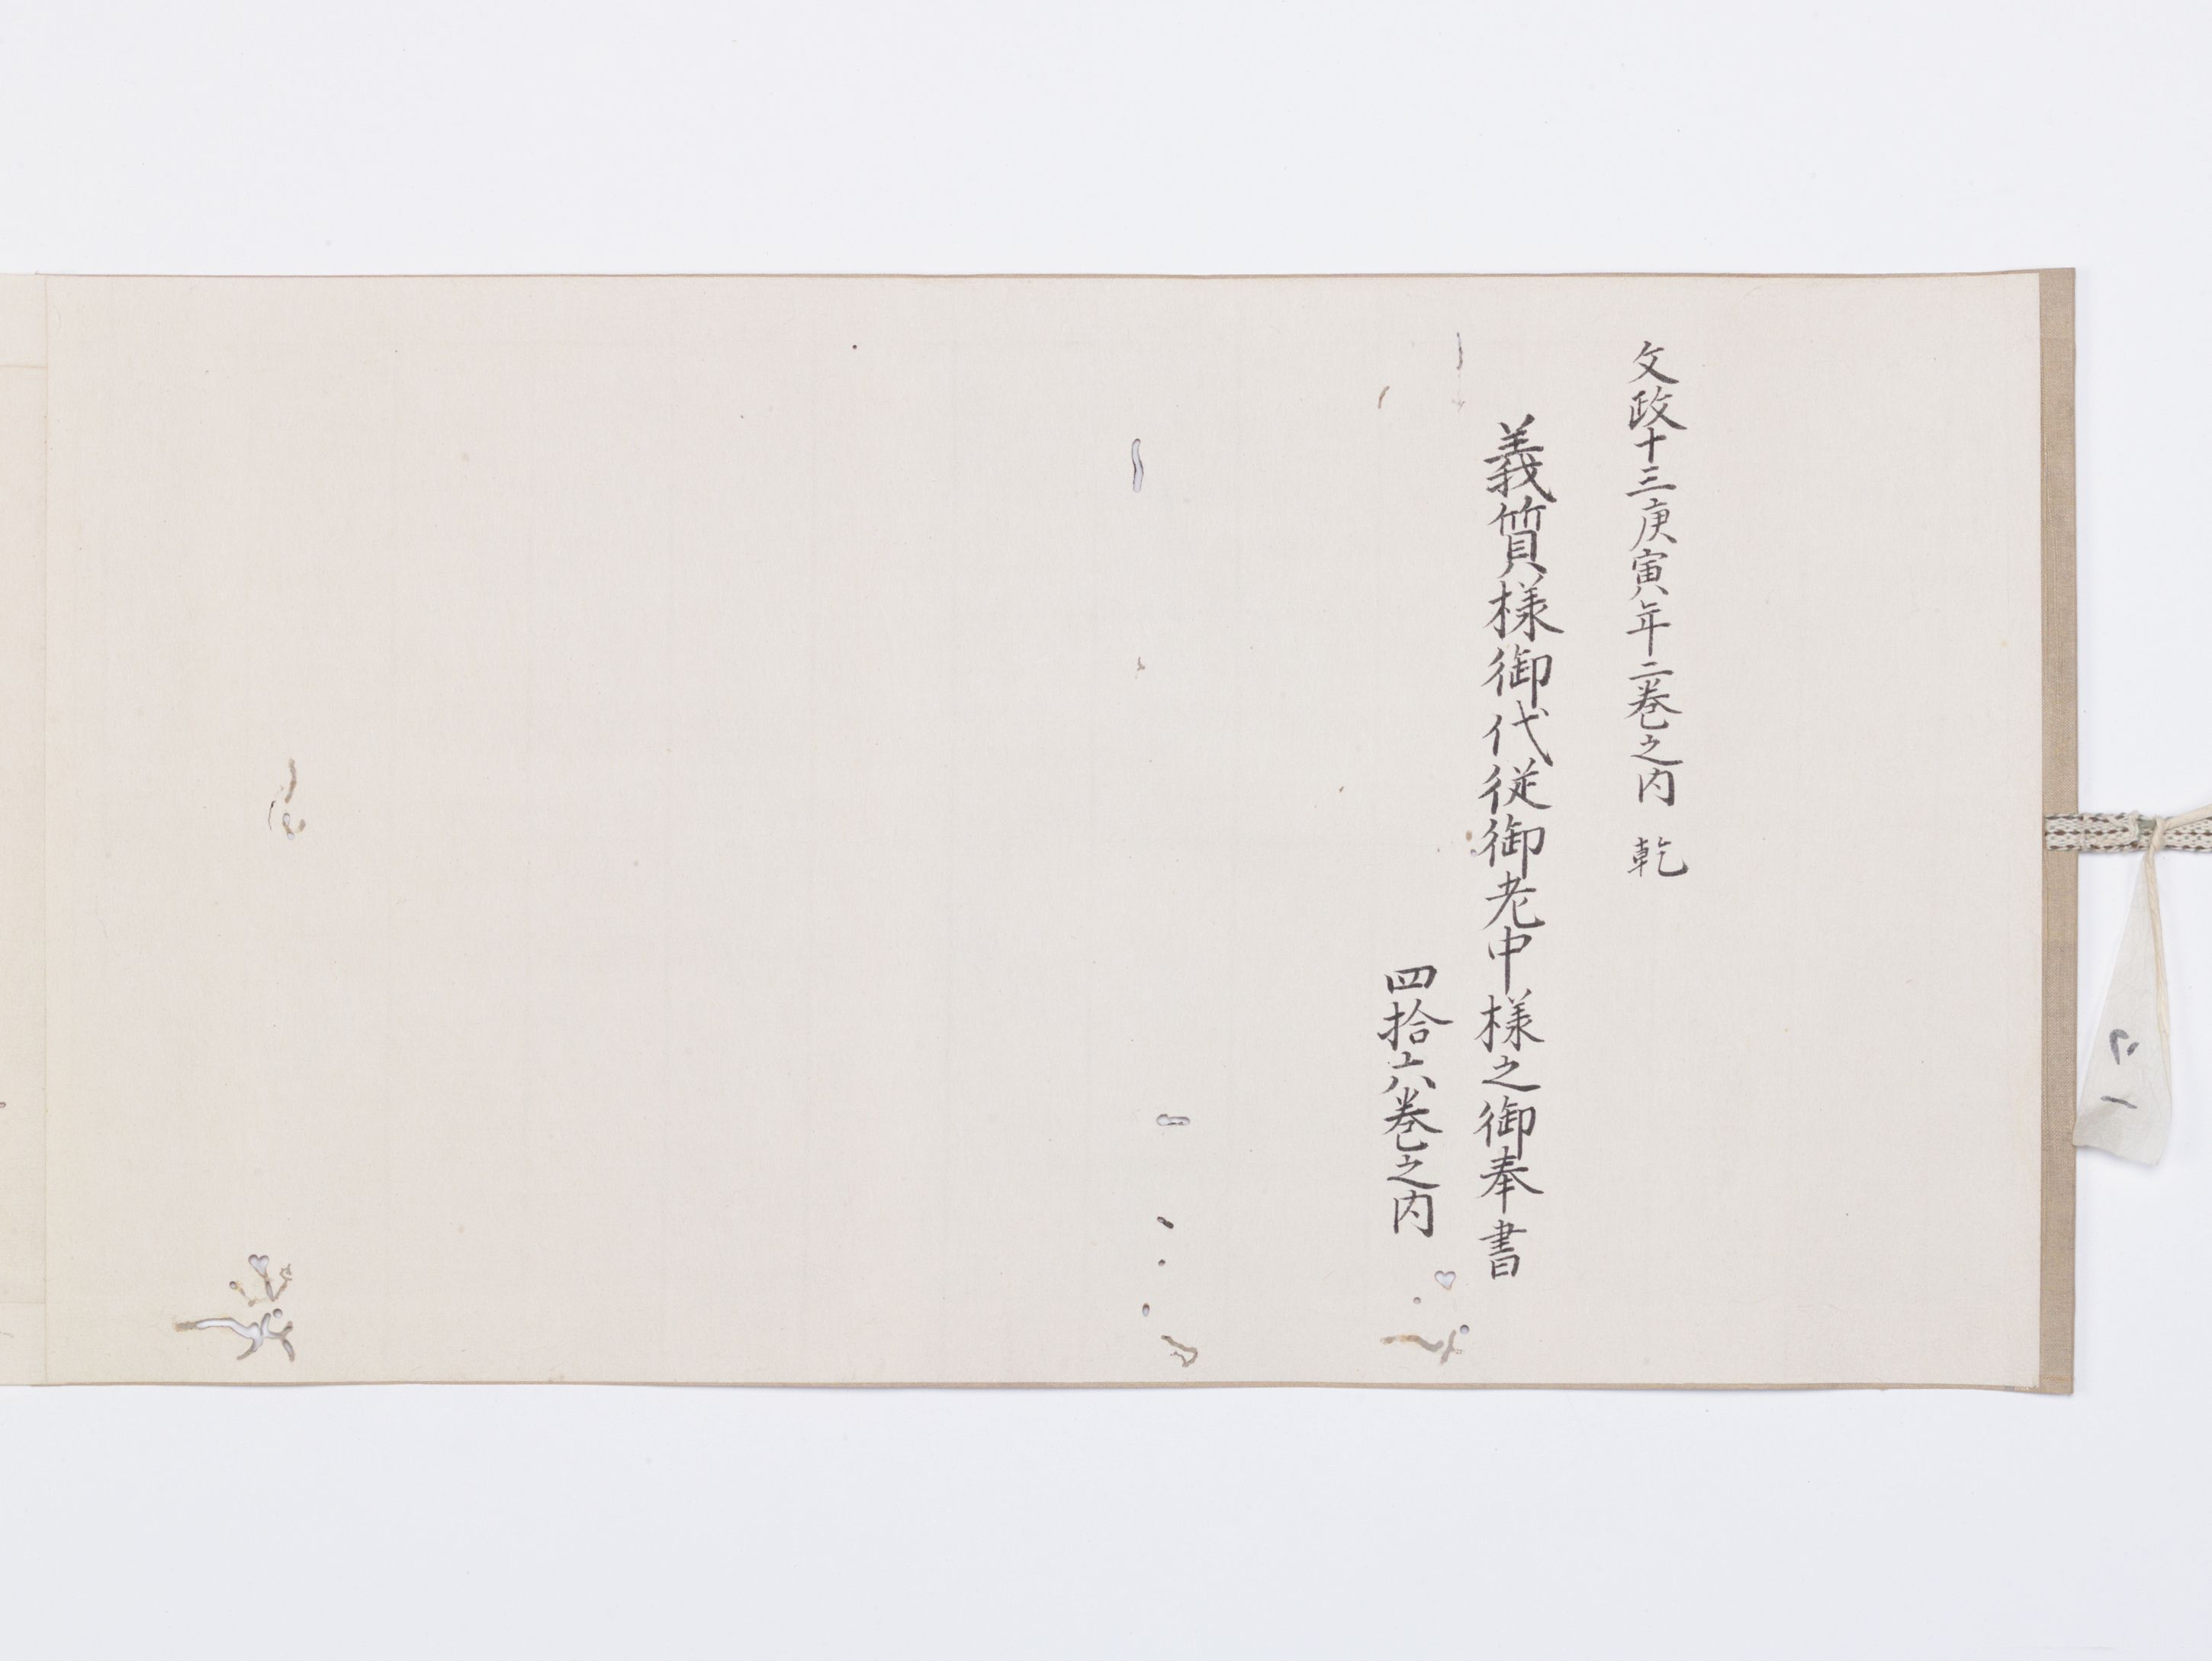 文政十三庚寅年二巻之内 乾
義質様御代従御老中様之御奉書
四拾六巻之内